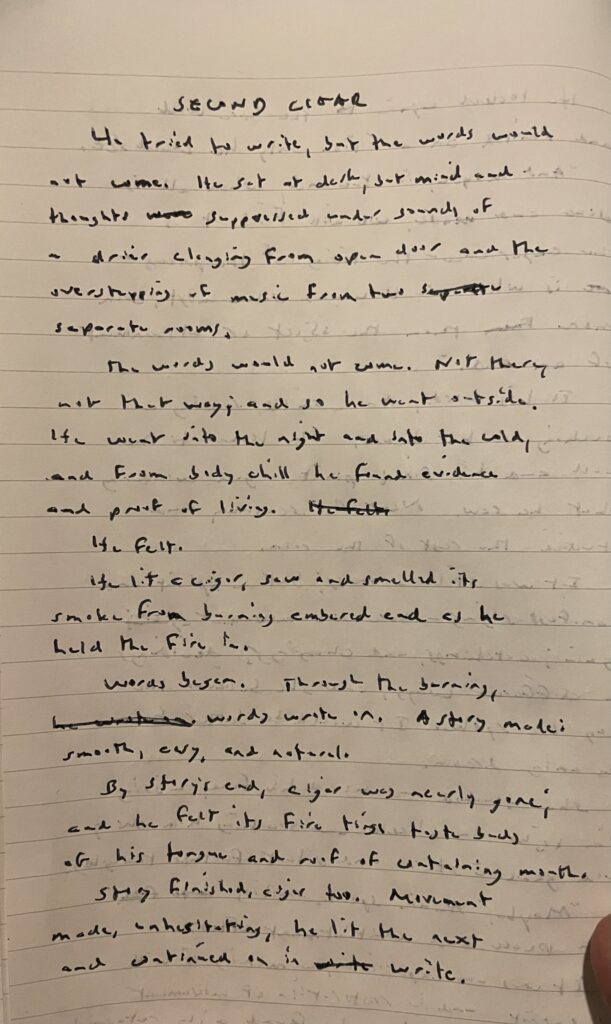 SECOND CIGAR
He tried to write, but the words would
not come. He sat at desk, but mind and
thoughts were suppressed under sounds of
a drier clanging from open door and the
overstepping of music from two separate
separate rooms.
The words would not come. Not there,
not that way; and so he went outside.
He went into the night and into the cold,
and from body chill he found evidence
and proof of living. He felt.
He felt.
He lit a cigar, saw and smelled its
smoke from burning embered end as he
held the fire in.
Words began. Through the burning,
he wrote on. words wrote in. A story made:
smooth, easy, and natural.
By story's end, cigar was nearly gone;
and he felt its fire taste buds
of his tongue and roof of containing mouth.
Story finished, cigar too. Movement
made, unhesitating, he lit the next
and continued on in write write.